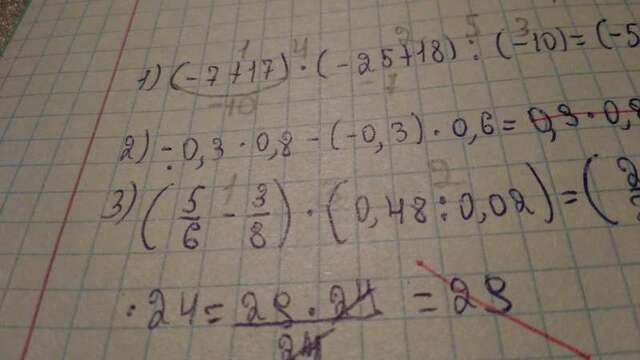 1) (-7+17) · (-25+18) : (-10) = (-5
2) -0,3 · 0,8 - (-0,3) · 0,6 = 0,3 · 0,8
3) (5/6 - 3/8) · (0,48 : 0,02) = (2
· 24 = 28 · 24 / 24 = 28